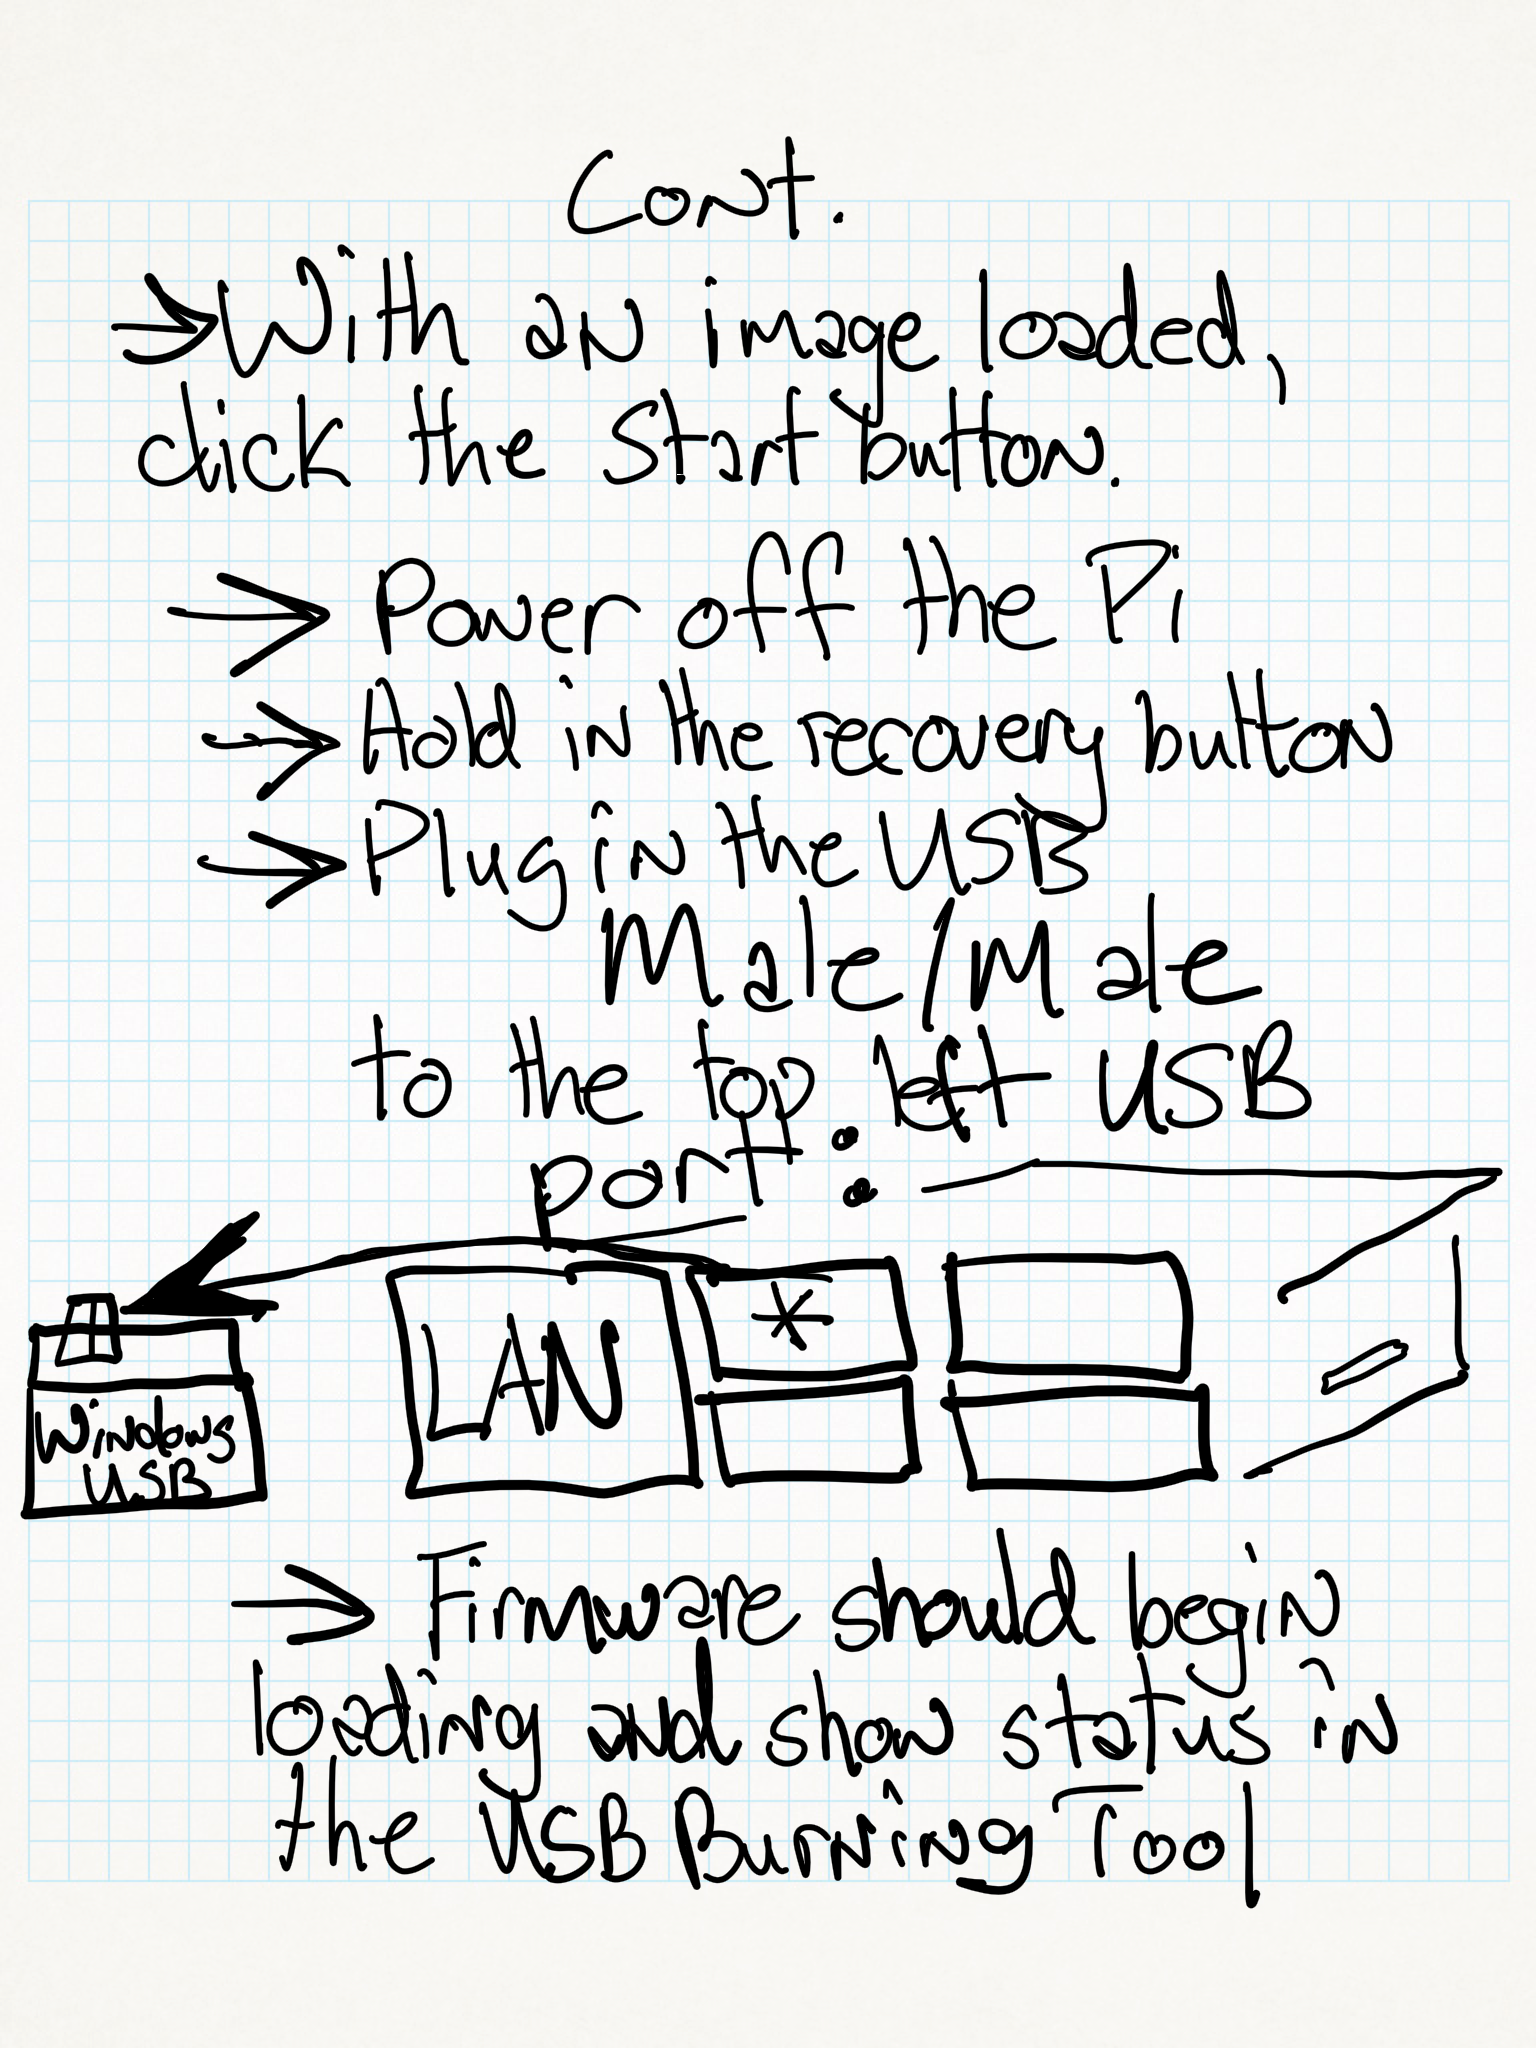 Cont.
→With an image loaded,
click the Start button.
→ Power off the Pi
→ Hold in the recovery button
→ Plug in the USB
Male/Male
to the top left USB
port:
LAN
*
Windows
USB
→ Firmware should begin
loading and show status in
the USB Burning Tool